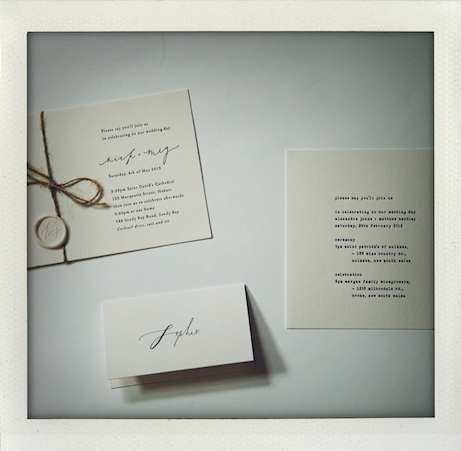 Please say you'll join us
in celebrating on our wedding day
nick + meg
Saturday, 4th of May 2013
3:30pm Saint David's Cathedral
125 Macquarie Street, Hobart
then join us to celebrate afterwards
5:30pm at our home
588 Sandy Bay Road, Sandy Bay
Cocktail dress, suit and tie
Sophie
please say you'll join us
in celebrating on our wedding day
alexandra jones + matthew
saturday, 25th february 2012
ceremony
3pm saint patrick's of nulkaba,
- wine country dr.,
nulkaba, new south wales
celebration
5pm morgan family winegrowers,
- milbrodale rd.,
broke, new south wales